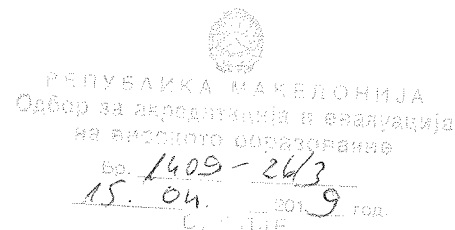 РЕПУБЛИКА МАКЕДОНИЈА
Одбор за акредитација и евалуација
на високото образование
Бр. 1409 - 26/3
15. 04. 2019 год.